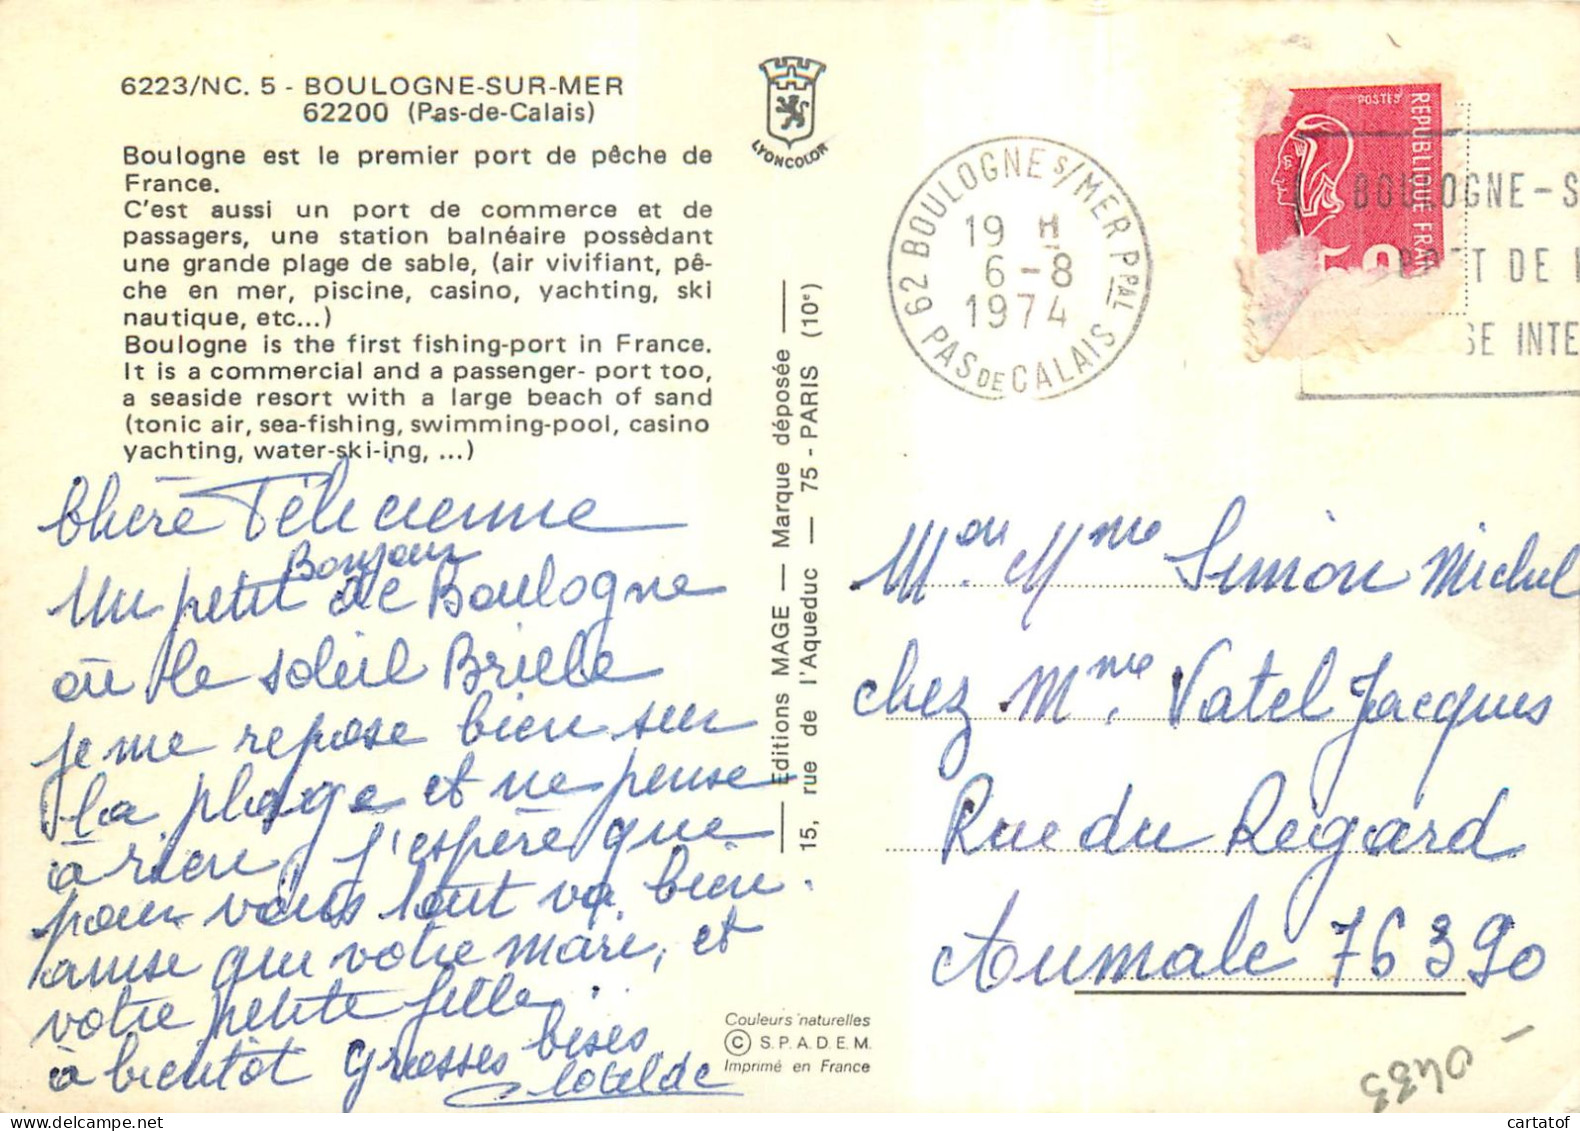 6223/NC. 5 - BOULOGNE-SUR-MER
62200 (Pas-de-Calais)
Boulogne est le premier port de pêche de
France.
C'est aussi un port de commerce et de
passagers, une station balnéaire possèdant
une grande plage de sable, (air vivifiant, pê-
che en mer, piscine, casino, yachting, ski
nautique, etc...)
Boulogne is the first fishing-port in France.
It is a commercial and a passenger- port too,
a seaside resort with a large beach of sand
(tonic air, sea-fishing, swimming-pool, casino
yachting, water-ski-ing, ...)
Chère Félicienne
Un petit Bonjour de Boulogne
où le soleil Brille
je me repose bien sur
la plage et ne pense
à rien, j'espère que
pour vous tout va bien.
ainse que votre mari, et
votre petite fille.
à bientôt grosses bises
Clotilde
LYONCOLOR
Editions MAGE — Marque déposée
15, rue de l'Aqueduc — 75 - PARIS (10e)
Couleurs naturelles
© S.P.A.D.E.M.
Imprimé en France
62 BOULOGNE S/MER PPAL
19 H
6-8
1974
PAS DE CALAIS
POSTES
REPUBLIQUE FRAN
BOULOGNE-S
PORT DE
SE INTE
Mr ou Mme Simon Michel
chez Mme Vatel Jacques
Rue du Régard
Aumale 76390
0435